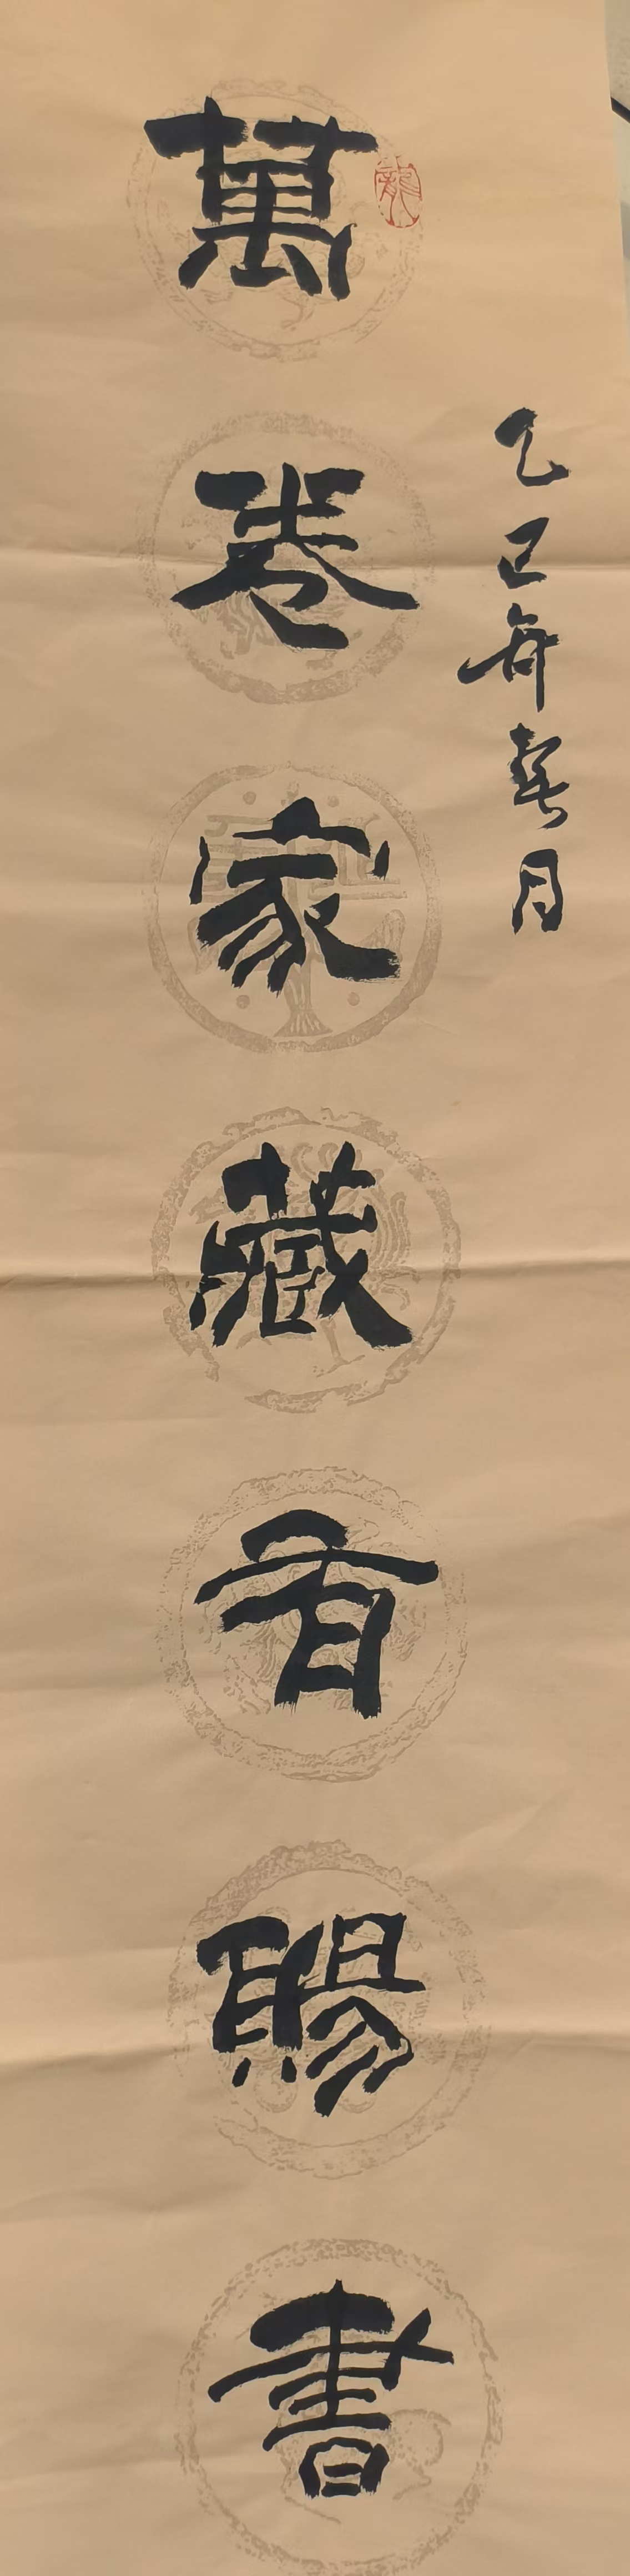 乙巳年春月
龍
萬卷家藏有賜書